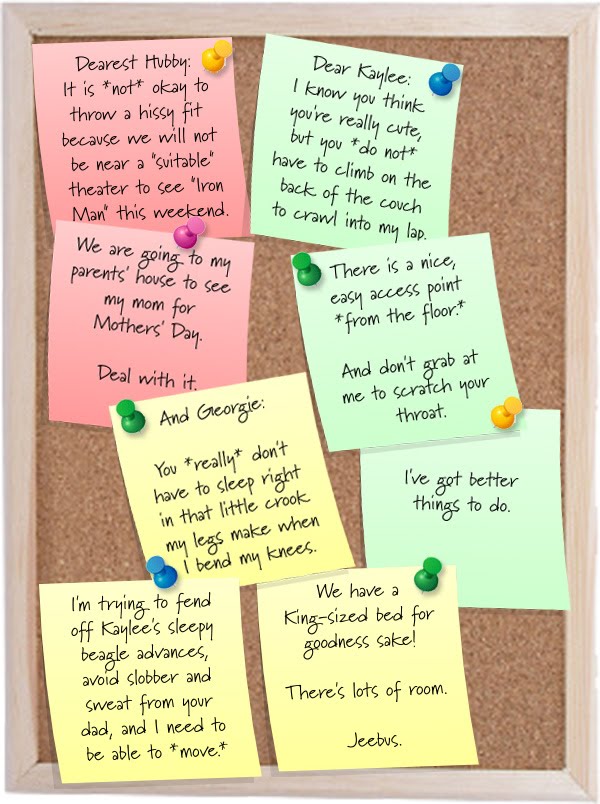 Dearest Hubby:
It is *not* okay to
throw a hissy fit
because we will not
be near a "suitable"
theater to see "Iron
Man" this weekend.
We are going to my
parents' house to see
my mom for
Mothers' Day.
Deal with it.
Dear Kaylee:
I know you think
you're really cute,
but you *do not*
have to climb on the
back of the couch
to crawl into my lap.
There is a nice,
easy access point
*from the floor.*
And don't grab at
me to scratch your
throat.
I've got better
things to do.
And Georgie:
You *really* don't
have to sleep right
in that little crook
my legs make when
I bend my knees.
I'm trying to fend
off Kaylee's sleepy
beagle advances,
avoid slobber and
sweat from your
dad, and I need to
be able to *move.*
We have a
King-sized bed for
goodness sake!
There's lots of room.
Jeebus.